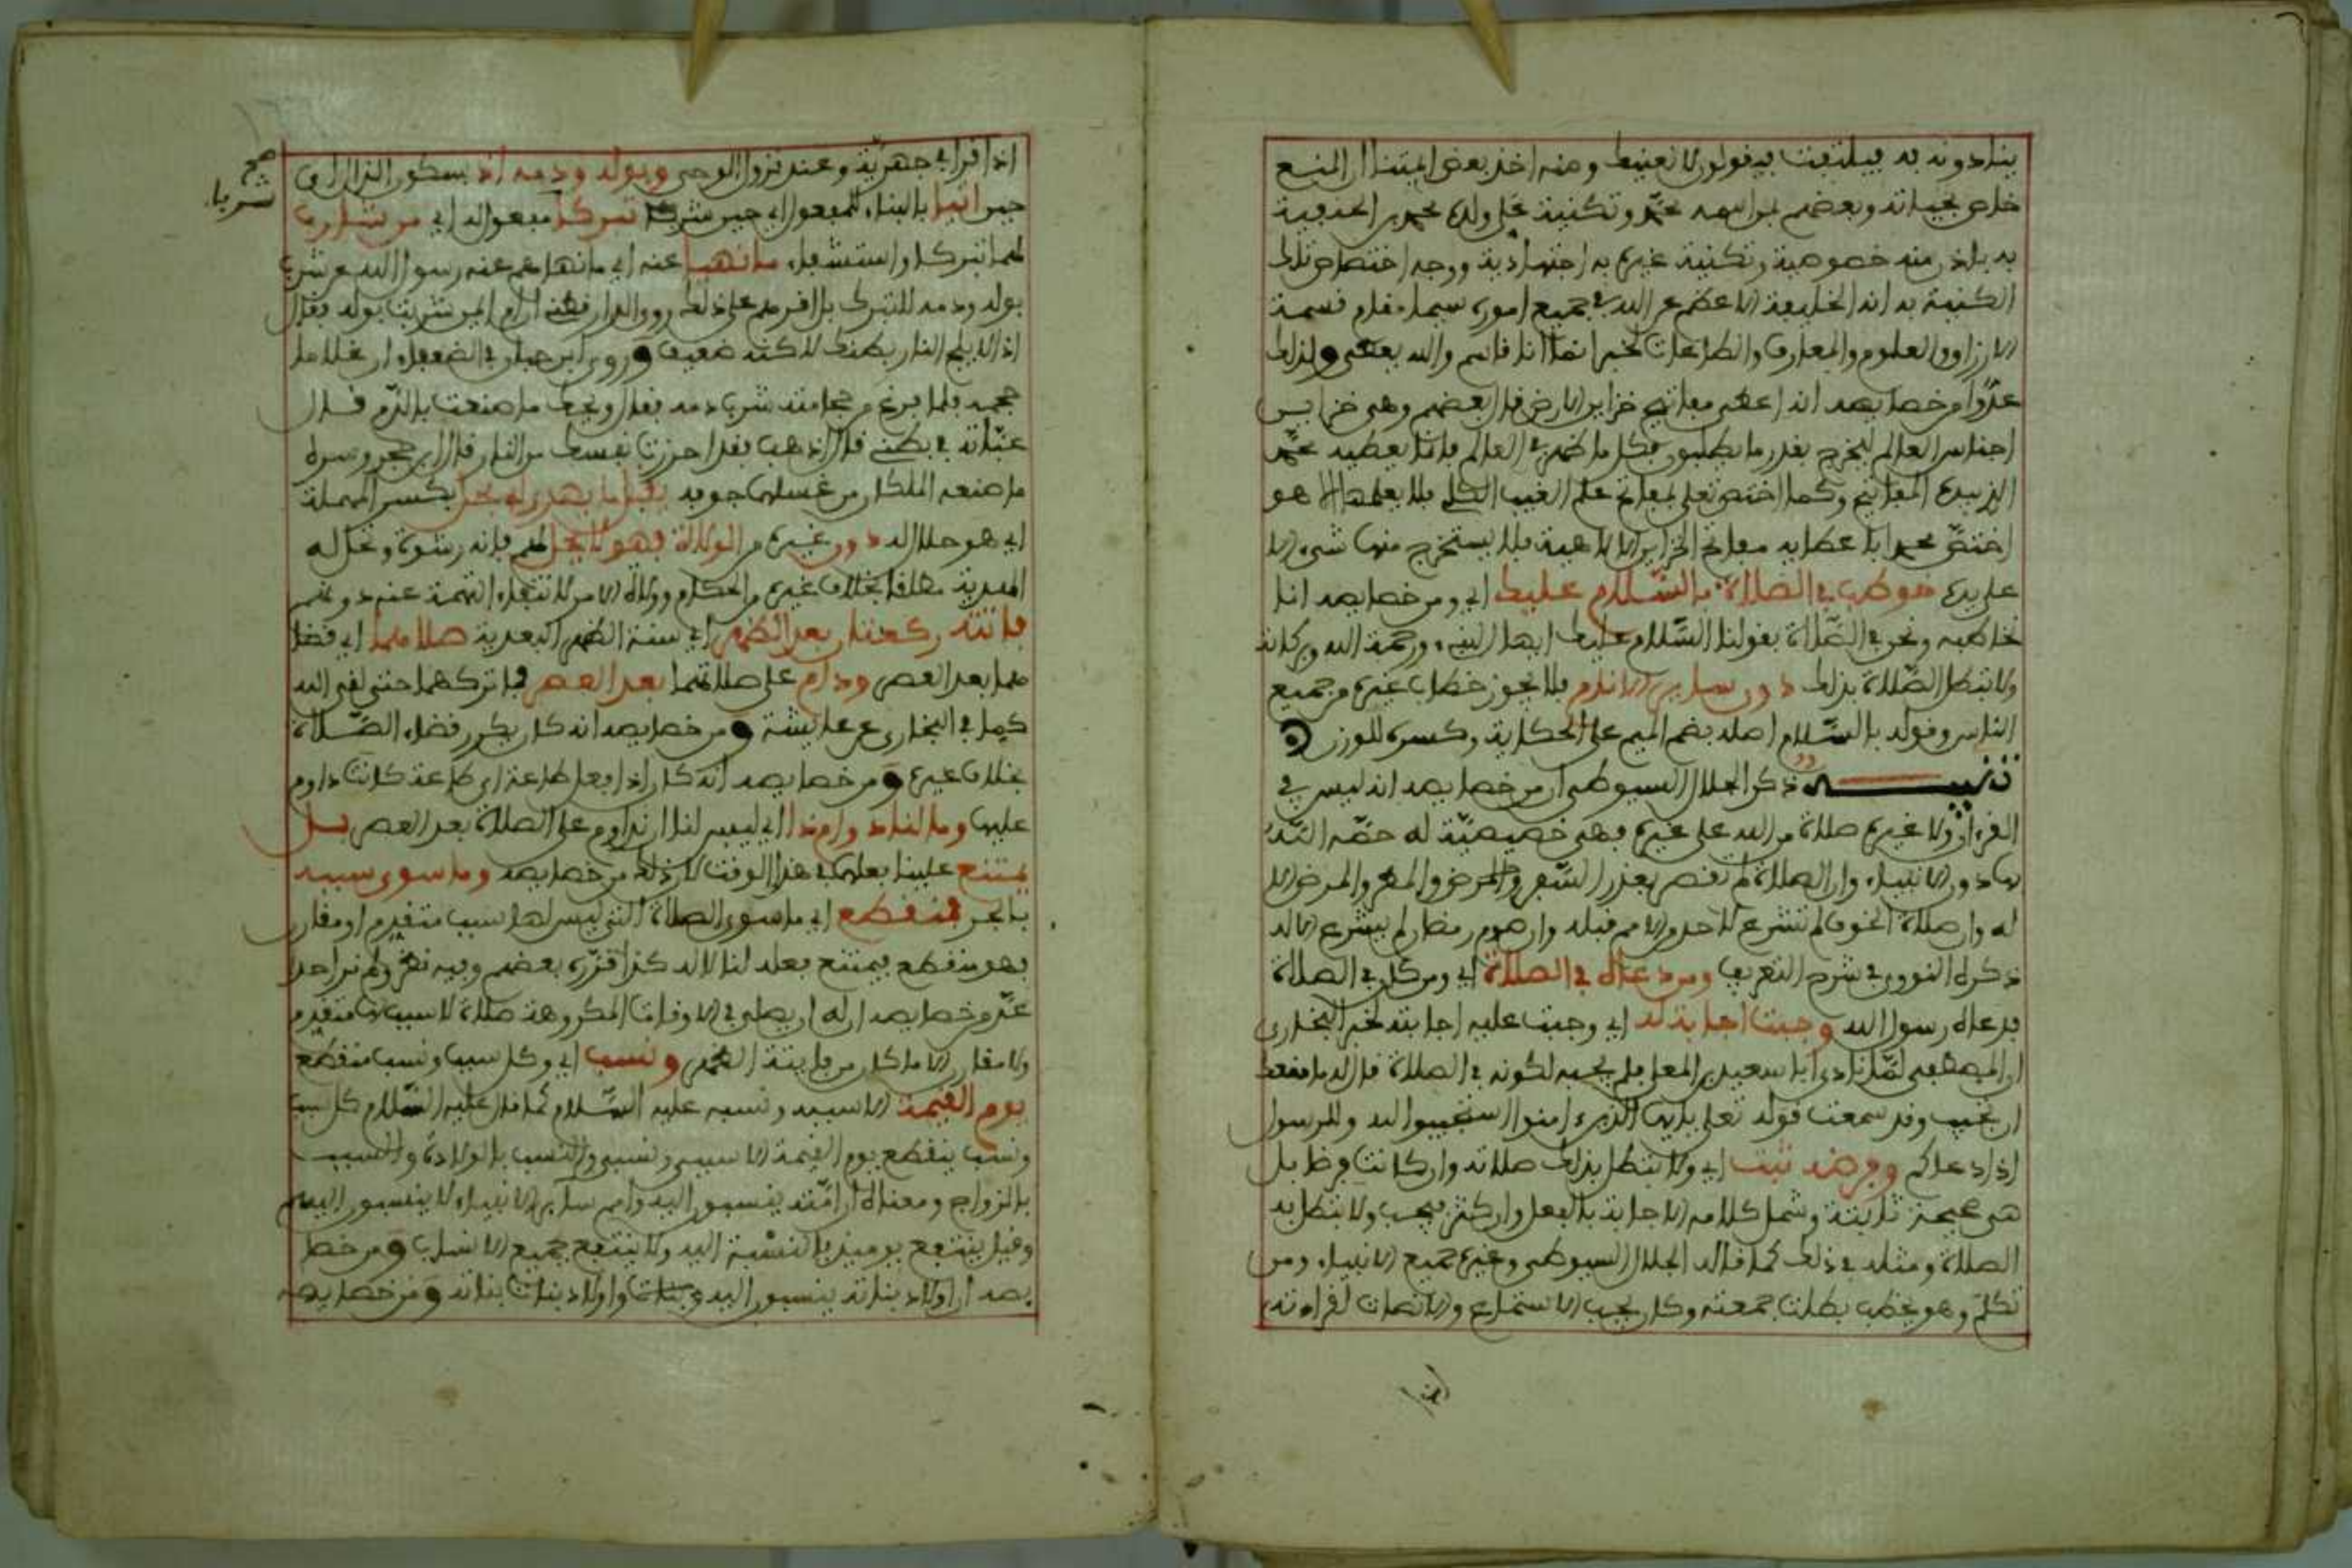 ينادونه به فيلتفت فيقولون لا نعنيك ومنه اخذ بعض ايمتنا ان المنع
خاص بحياته وبعضهم لمن اسمه محمد وتكنية علي ولده محمد بن الحنفية
به باذن منه خصوصية وتكنية غيره به اجتهادية ووجه اختصاص تلك
الكنية به انه الخليفة الاعظم عن الله في جميع اموره سيما مقام قسمة
الارزاق والعلوم والمعارف والطاعات لخبر انما انا قاسم والله يعطي ولذلك
عدوا من خصايصه انه اعطي مفاتيح خزاين الارض قال بعضهم وهي خزاين
اجناس العالم ليخرج بقدر ما يطلبون فكل ما ظهر في العالم فانما يعطيه محمد
الذي بيده المفاتيح وكما اختص تعلى بمفاتح علم الغيب الكلي فلا يعلمها الا هو
اختص محمدا باعطايه مفاتح الخزاين الالاهية فلا يستخرج منها شيء الا
على يده خوطب في الصلاة بالسلام عليك اي ومن خصايصه اننا
نخاطبه ونحن في الصلاة بقولنا السلام عليك ايها النبيء ورحمة الله وبركاته
ولا تبطل الصلاة بذلك دون ساير الانام فلا يجوز خطاب غيره من جميع
الناس وقوله بالسلام اصله بضم الميم على الحكاية وكسره للوزن
تنبيه ذكر الجلال السيوطي ان من خصايصه انه ليس في
القرءان ولا غيره صلاة من الله على غيره فهي خصيصية له خصه الله
بها دون الانبياء وان الصلاة لم تفصر بعذر السفر والمرض والمطر والمرض الا
له وان صلاة الخوف لم تشرع لاحد من الامم قبله وان صوم رمضان لم يشرع الا له
ذكره النووي في شرح التعريف ومن دعاه في الصلاة اي ومن كان في الصلاة
فدعاه رسول الله وجبت اجابته له اي وجبت عليه اجابته لخبر البخاري
ان المصطفى لما نادى ابا سعيد بن المعلى فلم يجبه لكونه في الصلاة قال له ما منعك
ان تجيب وقد سمعت قوله تعلى يايها الذين ءامنوا استجيبوا لله وللرسول
اذا دعاكم وفرضه ثبت اي ولا تبطل بذلك صلاته وان كانت فرضا بل
هي صحيحة ثابتة وشمل كلامه الاجابة بالفعل وان كثر فيجب ولا تبطل به
الصلاة ومثله في ذلك كما قاله الجلال السيوطي وغيره جميع الانبياء ومن
تكلم وهو يخطب بطلت جمعته وكان يجب الاستماع والانصات لقراءته
اذا قرا في جهرية وعند نزول الوحي وبوله ودمه اذ بسكون الذال اي
حين اتيا بالبناء للمفعول اي حين شربا تبركا مفعول له اي من شارب
لهما تبركا واستشفاء ما نهيا عنه اي ما نهاهم عنه رسول الله عن شرب
بوله ودمه للتبرك بل اقرهم على ذلك روى الدارقطني ان ام ايمن شربت بوله فقال
اذا لا يلج النار بطنك لاكنه ضعيف وروى ابن حبان في الضعفاء ان غلاما
حجمه فلما فرغ من حجامته شرب دمه فقال ويحك ما صنعت بالدم قال
غيبته في بطني قال اذهب فقد احرزت نفسك من النار قال ابن حجر وسره
ما صنعه الملكان من غسلهما جوفه يقبل ما يهدى له بحل بكسر المهملة
اي هو حلال له دون غيره من الولاة فهو لا يحل لهم فانه رشوة وتحل له
الهدية مطلقا بخلاف غيره من الحكام وولاة الامر لانتفاء التهمة عنه دونهم
فاتته ركعتان بعد الظهر اي سنة الظهر البعدية صلاهما اي قضا
هما بعد العصر ودام على صلاتهما بعد العصر فما تركهما حتى لقي الله
كما في البخاري عن عايشة ومن خصايصه انه كان يكرر قضاء الصلاة
بخلاف غيره ومن خصايصه انه كان اذا فعل طاعة اي طاعة كانت داوم
عليها وما لنا دوام ذا اي ليس لنا ان نداوم على الصلاة بعد العصر بل
يمتنع علينا فعلها في هذا الوقت لان ذلك من خصايصه وما سوى سببه
بالجر منقطع اي ما سوى الصلاة التي ليس لها سبب متقدم او مقارن
فهو منقطع فيمتنع فعله لنا لا له كذا قرره بعضهم وفيه نظر ولم نر احدا
عد من خصايصه ان له ان يصلي في الاوقات المكروهة صلاة لا سبب لها متقدم
ولا مقارن الا ما كان من فايتة الظهر ونسب اي وكل سبب ونسب منقطع
يوم القيمة الا سببه ونسبه عليه السلام كما قال عليه السلام كل سبب
ونسب ينقطع يوم القيمة الا سببي ونسبي والنسب بالولادة والسبب
بالزواج ومعناه ان امته ينسبون اليه وامم ساير الانبياء لا ينسبون اليهم
وقيل ينتفع يوميذ بالنسبة اليه ولا ينتفع بجميع الانساب ومن خصا
يصه ان اولاد بناته ينسبون اليه وبنات واولاد بنات بناته ومن خصايصه
صح
شربا
اذا